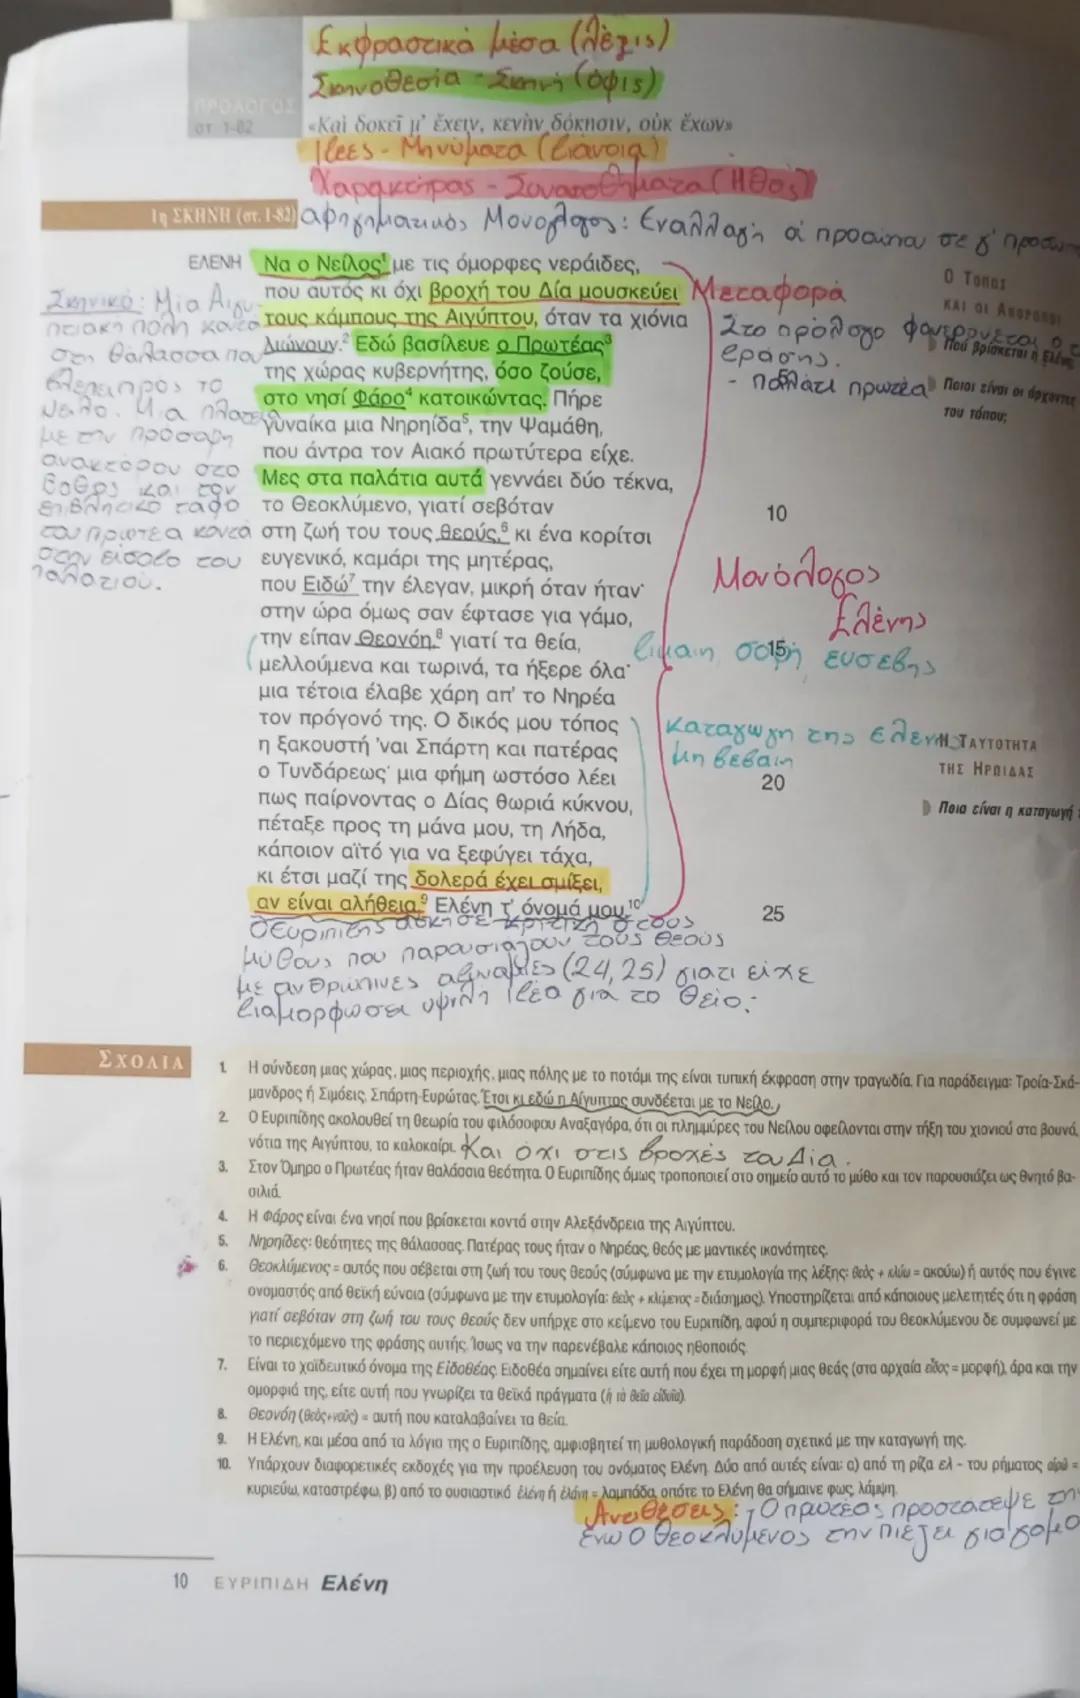 Εκφραστικά μέσα (λέξις)
Σκηνοθεσία - Σκηνή (όψις)
ΠΡΟΛΟΓΟΣ
στ. 1-82
«Καὶ δοκεῖ μ' ἔχειν, κενὴν δόκησιν, οὐκ ἔχων»
Ιδέες - Μηνύματα (διάνοια)
Χαρακτήρας - Συναισθήματα (Ήθος)
1η ΣΚΗΝΗ (στ. 1-82)
αφηγηματικός Μονόλογος: Εναλλαγή α' προσώπου σε γ' προσώπ
ΕΛΕΝΗ Να ο Νείλος¹ με τις όμορφες νεράιδες,
που αυτός κι όχι βροχή του Δία μουσκεύει
τους κάμπους της Αιγύπτου, όταν τα χιόνια
λιώνουν.² Εδώ βασίλευε ο Πρωτέας³
της χώρας κυβερνήτης, όσο ζούσε,
στο νησί Φάρο⁴ κατοικώντας. Πήρε
γυναίκα μια Νηρηίδα⁵, την Ψαμάθη,
που άντρα τον Αιακό πρωτύτερα είχε.
Μες στα παλάτια αυτά γεννάει δύο τέκνα,
το Θεοκλύμενο, γιατί σεβόταν
στη ζωή του τους θεούς,⁶ κι ένα κορίτσι
ευγενικό, καμάρι της μητέρας,
που Ειδώ⁷ την έλεγαν, μικρή όταν ήταν·
στην ώρα όμως σαν έφτασε για γάμο,
την είπαν Θεονόη,⁸ γιατί τα θεία,
μελλούμενα και τωρινά, τα ήξερε όλα·
μια τέτοια έλαβε χάρη απ' το Νηρέα
τον πρόγονό της. Ο δικός μου τόπος
η ξακουστή 'ναι Σπάρτη και πατέρας
ο Τυνδάρεως· μια φήμη ωστόσο λέει
πως παίρνοντας ο Δίας θωριά κύκνου,
πέταξε προς τη μάνα μου, τη Λήδα,
κάποιον αϊτό για να ξεφύγει τάχα,
κι έτσι μαζί της δολερά έχει σμίξει,
αν είναι αλήθεια.⁹ Ελένη τ' όνομά μου.¹⁰
10
15
20
25
Σκηνικό: Μια Αιγυ-
πτιακή πόλη κοντά
στη θάλασσα που
βλέπει προς το
Νείλο. Μια πλατεία
με την πρόσοψη
ανακτόρου στο
βάθος και τον
επιβλητικό τάφο
του Πρωτέα κοντά
στην είσοδο του
παλατιού.
Μεταφορά
Στο πρόλογο φανερώνεται ο τ
δράσης.
- παλάτι πρωτέα
Ο ΤΟΠΟΣ
ΚΑΙ ΟΙ ΑΝΘΡΩΠΟΙ
Πού βρίσκεται η Ελένη
Ποιοι είναι οι άρχοντες
του τόπου;
Μονόλογος
Ελένης
δίκαιη σοφή ευσεβής
Καταγωγή της Ελένης
μη βέβαιη
Η ΤΑΥΤΟΤΗΤΑ
ΤΗΣ ΗΡΩΙΔΑΣ
Ποια είναι η καταγωγή
Ο Ευριπίδης ασκησε κριτική στους
μύθους που παρουσιάζουν τους θεούς
με ανθρώπινες αδυναμίες (24, 25) γιατί είχε
διαμορφώσει υψηλή ιδέα για το θείο.
ΣΧΟΛΙΑ
1. Η σύνδεση μιας χώρας, μιας περιοχής, μιας πόλης με το ποτάμι της είναι τυπική έκφραση στην τραγωδία. Για παράδειγμα: Τροία-Σκά-
μανδρος ή Σιμόεις, Σπάρτη-Ευρώτας. Έτσι κι εδώ η Αίγυπτος συνδέεται με το Νείλο.
2. Ο Ευριπίδης ακολουθεί τη θεωρία του φιλόσοφου Αναξαγόρα, ότι οι πλημμύρες του Νείλου οφείλονται στην τήξη του χιονιού στα βουνά,
νότια της Αιγύπτου, το καλοκαίρι. Και όχι στις βροχές του Δία.
3. Στον Όμηρο ο Πρωτέας ήταν θαλάσσια θεότητα. Ο Ευριπίδης όμως τροποποιεί στο σημείο αυτό το μύθο και τον παρουσιάζει ως θνητό βα-
σιλιά.
4. Η Φάρος είναι ένα νησί που βρίσκεται κοντά στην Αλεξάνδρεια της Αιγύπτου.
5. Νηρηίδες: θεότητες της θάλασσας. Πατέρας τους ήταν ο Νηρέας, θεός με μαντικές ικανότητες.
6. Θεοκλύμενος = αυτός που σέβεται στη ζωή του τους θεούς (σύμφωνα με την ετυμολογία της λέξης: θεὸς + κλύω = ακούω) ή αυτός που έγινε
ονομαστός από θεϊκή εύνοια (σύμφωνα με την ετυμολογία: θεὸς + κλύμενος = διάσημος). Υποστηρίζεται από κάποιους μελετητές ότι η φράση
γιατί σεβόταν στη ζωή του τους θεούς δεν υπήρχε στο κείμενο του Ευριπίδη, αφού η συμπεριφορά του Θεοκλύμενου δε συμφωνεί με
το περιεχόμενο της φράσης αυτής. Ίσως να την παρενέβαλε κάποιος ηθοποιός.
7. Είναι το χαϊδευτικό όνομα της Ειδοθέας. Ειδοθέα σημαίνει είτε αυτή που έχει τη μορφή μιας θεάς (στα αρχαία εἶδος = μορφή), άρα και την
ομορφιά της, είτε αυτή που γνωρίζει τα θεϊκά πράγματα (ἡ τὰ θεῖα εἰδυῖα).
8. Θεονόη (θεὸς+νοῦς) = αυτή που καταλαβαίνει τα θεία.
9. Η Ελένη, και μέσα από τα λόγια της ο Ευριπίδης, αμφισβητεί τη μυθολογική παράδοση σχετικά με την καταγωγή της.
10. Υπάρχουν διαφορετικές εκδοχές για την προέλευση του ονόματος Ελένη. Δύο από αυτές είναι: α) από τη ρίζα ελ - του ρήματος αἱρῶ =
κυριεύω, καταστρέφω, β) από το ουσιαστικό ἑλένη ή ἑλάνη = λαμπάδα, οπότε το Ελένη θα σήμαινε φως, λάμψη.
Αντιθέσεις: Ο πρωτέας προστάτεψε την
ενώ ο Θεοκλύμενος την πιέζει για γάμο
10 ΕΥΡΙΠΙΔΗ Ελένη